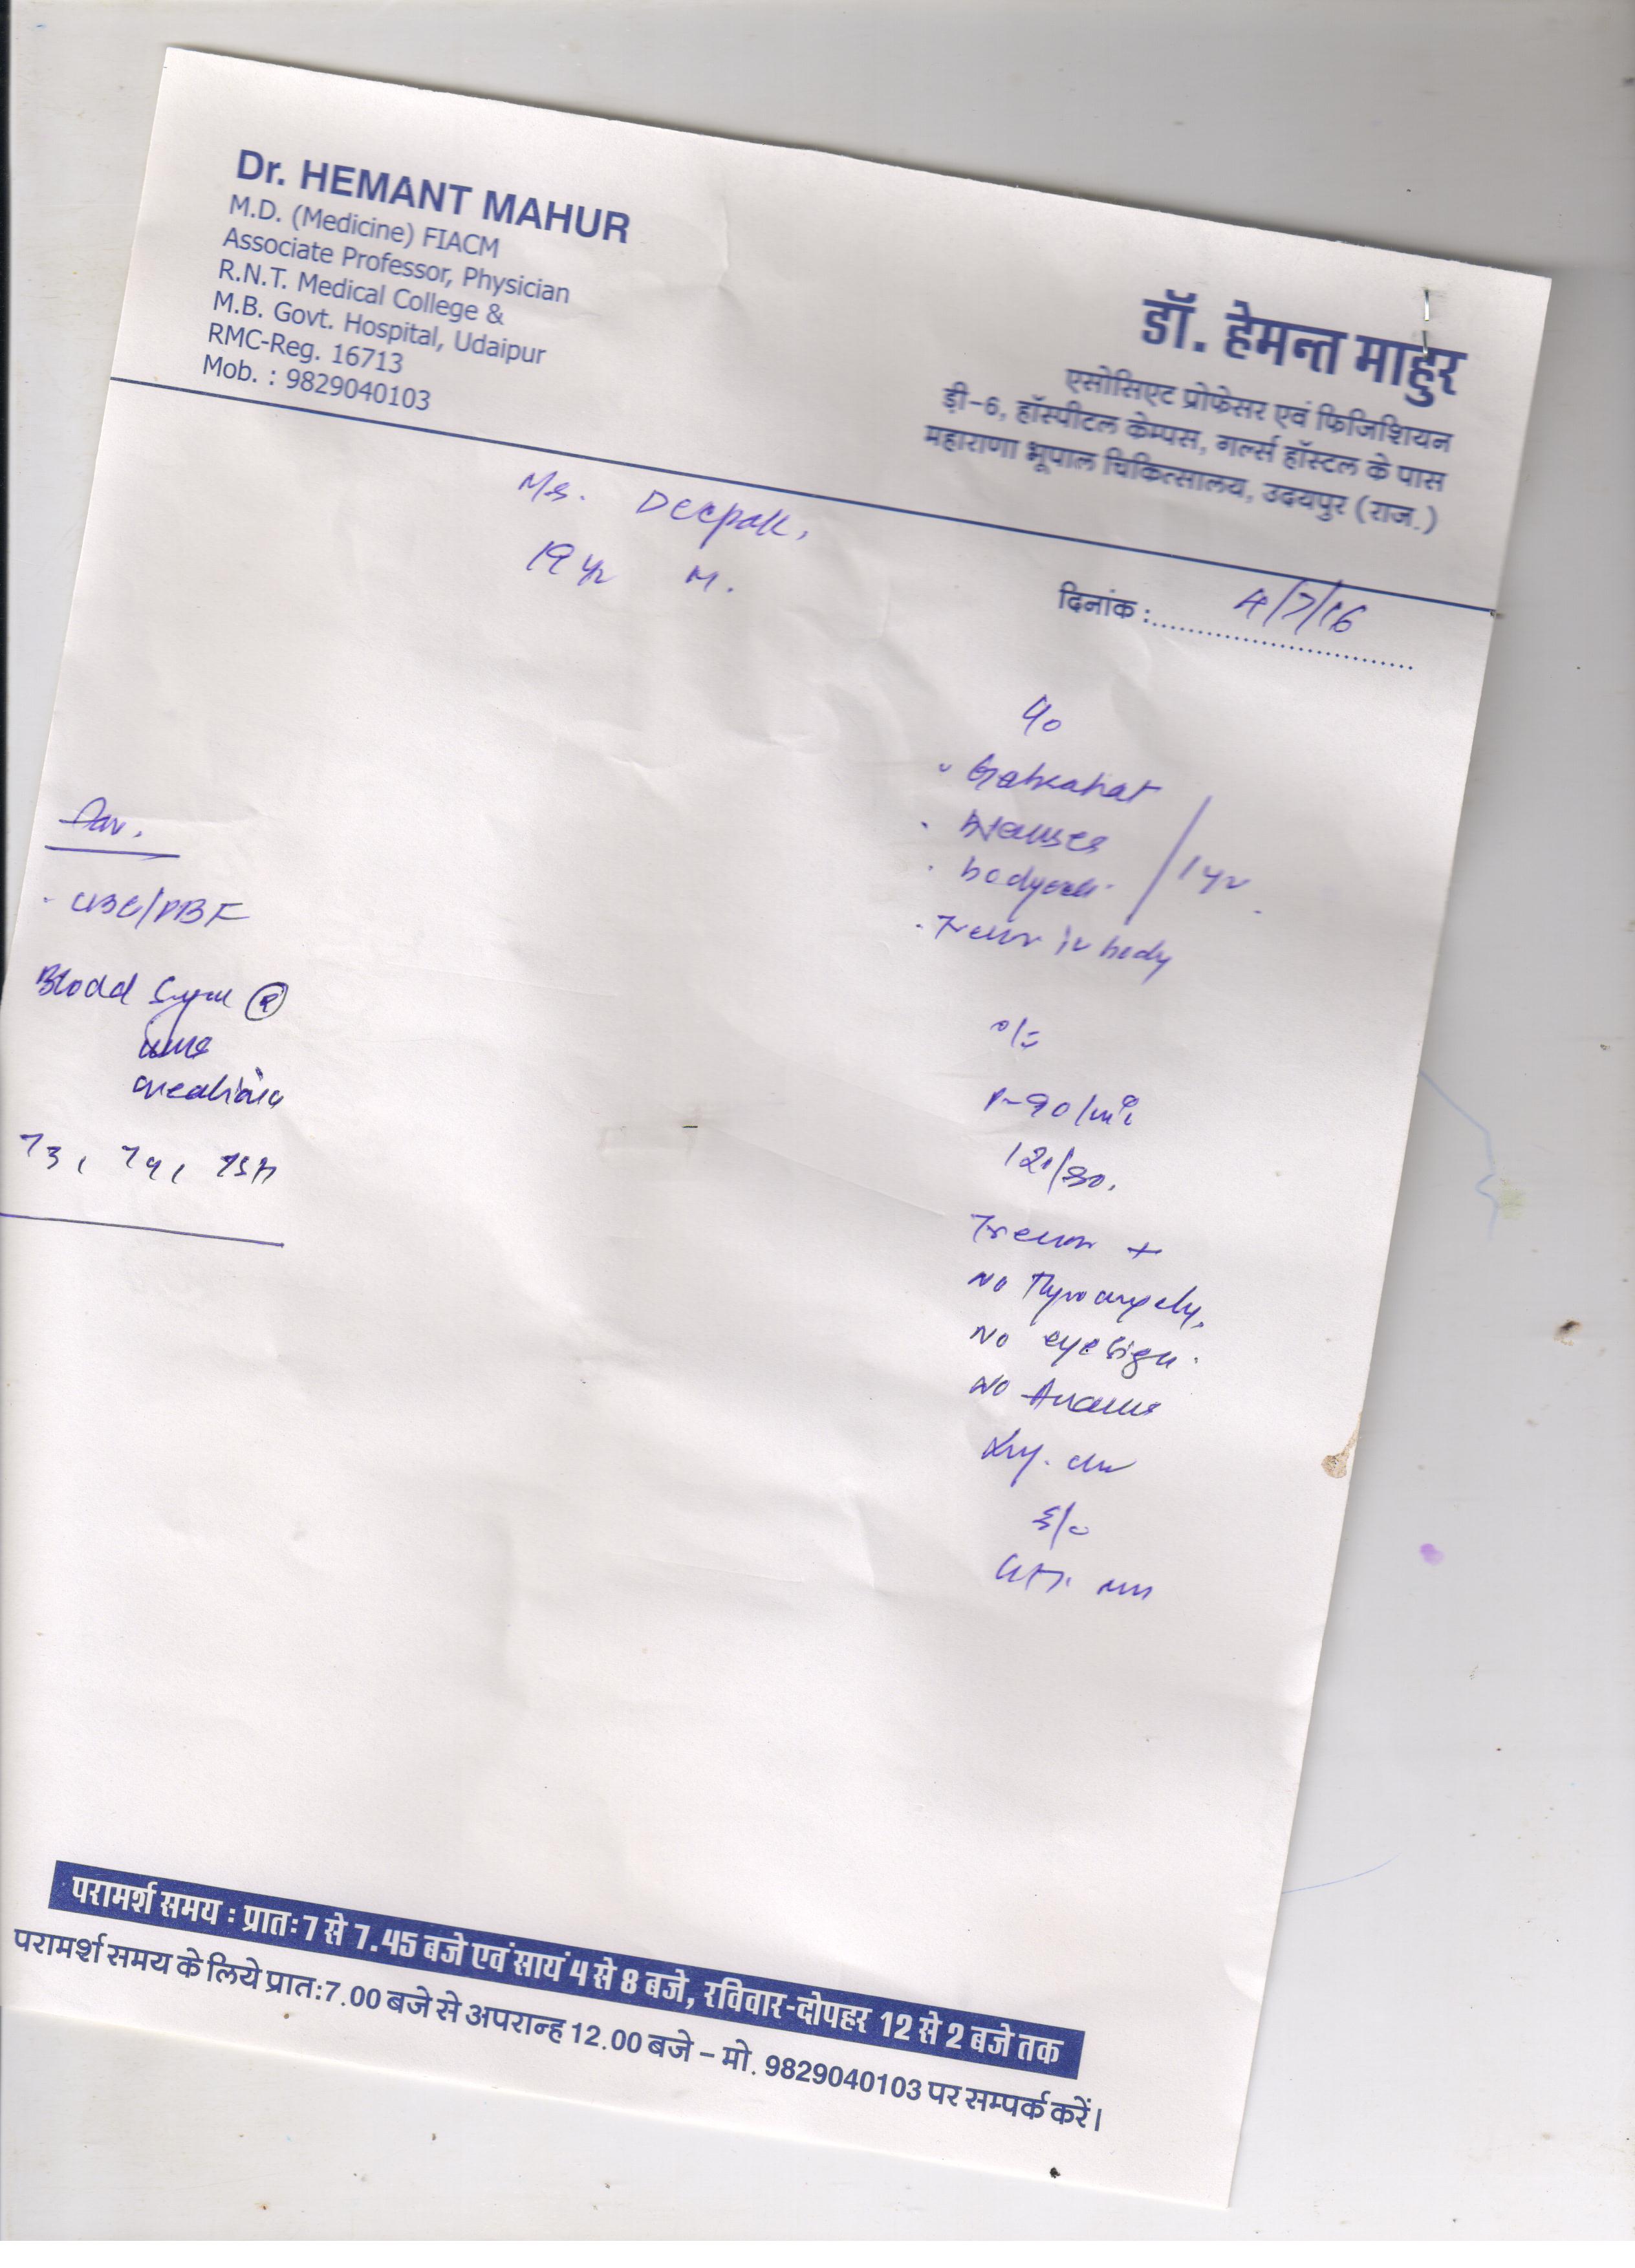 Dr. HEMANT MAHUR
M.D. (Medicine) FIACM
Associate Professor, Physician
R.N.T. Medical College &
M.B. Govt. Hospital, Udaipur
RMC-Reg. 16713
Mob. : 9829040103
डॉ. हेमन्त माहुर
एसोसिएट प्रोफेसर एवं फिजिशियन
ड़ी-6, हॉस्पीटल केम्पस, गर्ल्स हॉस्टल के पास
महाराणा भूपाल चिकित्सालय, उदयपुर (राज.)
Deepak,
19 yr M.
दिनांक : 4/7/16
Gabrahat
1 yr
Tremor in body
CBC/PBF
Blood Sugar (R)
Urea
Creatinine
T3, T4, TSH
P-90/min
Tremor +
No Thyromegaly,
No eye sign.
No Anaemia
परामर्श समय : प्रातः 7 से 7.45 बजे एवं सायं 4 से 8 बजे, रविवार-दोपहर 12 से 2 बजे तक
परामर्श समय के लिये प्रात:7.00 बजे से अपरान्ह 12.00 बजे – मो. 9829040103 पर सम्पर्क करें।